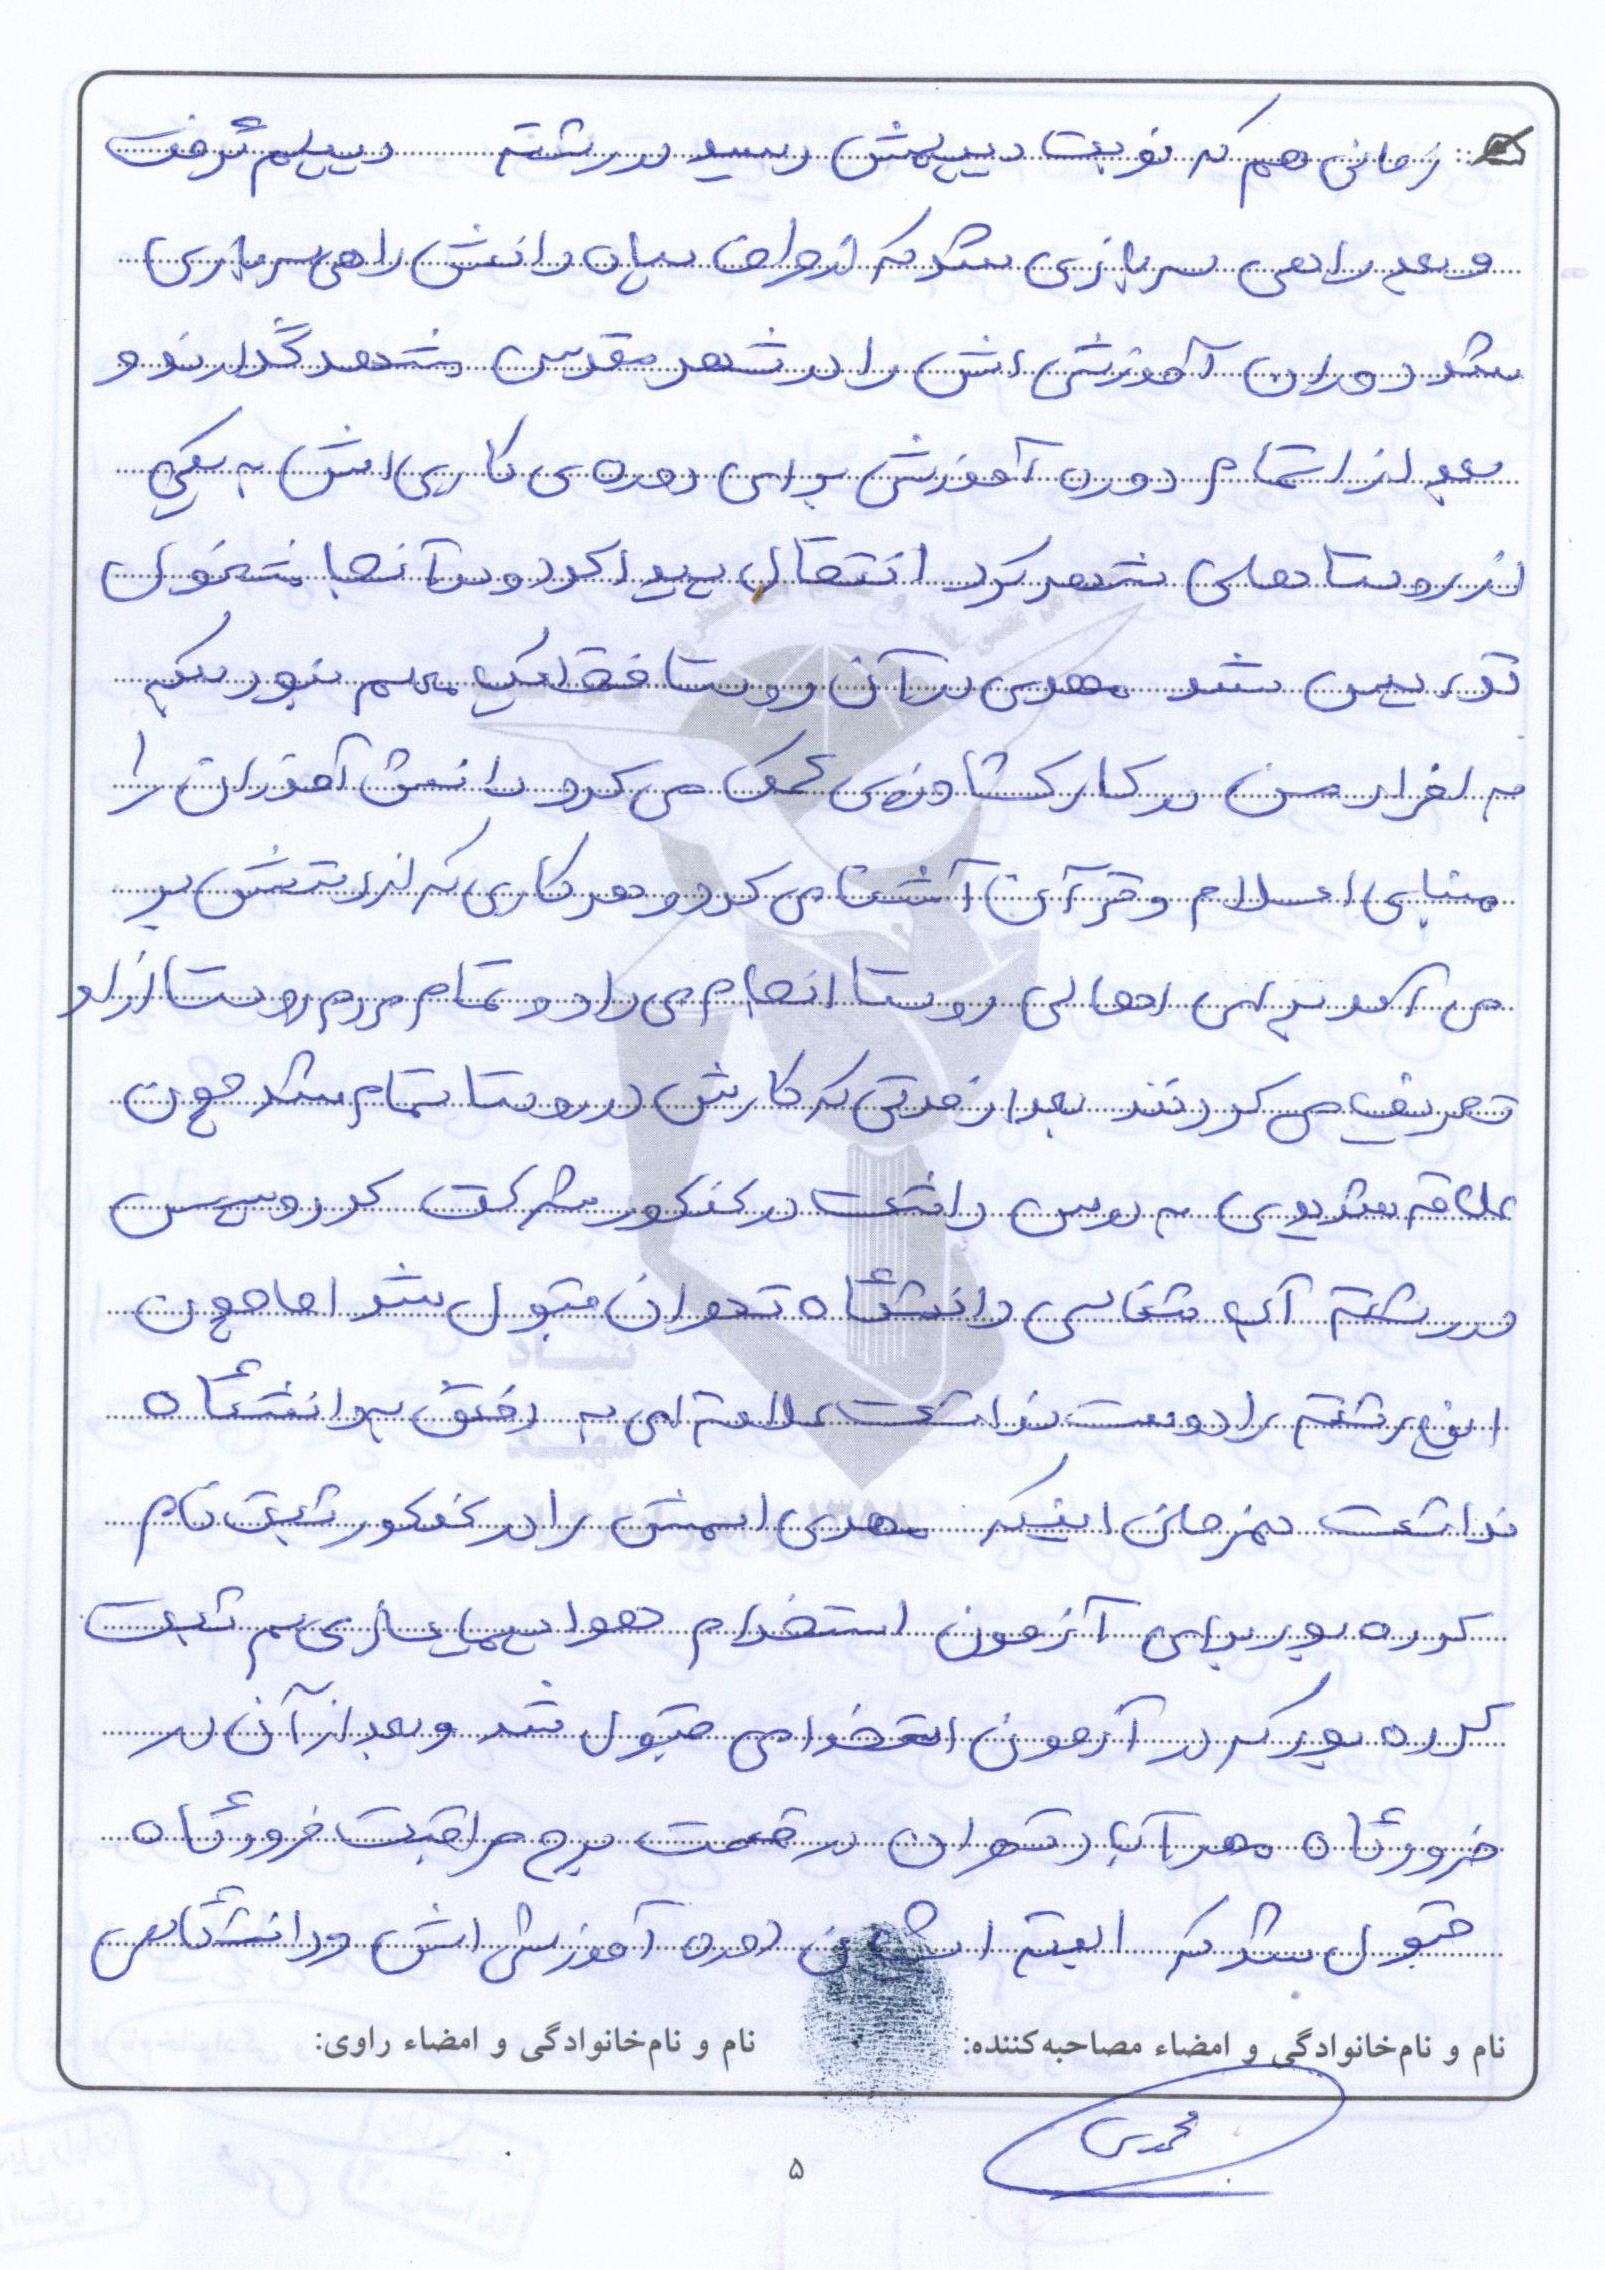 زمانی هم که نوبت دیپلمش رسید در رشته دیپلم گرفت
و بعد راهی سربازی شد که از طرف سپاه دانش راهی سربازی
شد دوران آموزشی اش را در شهر مقدس مشهد گذارند و
بعد از اتمام دوره آموزش برای دوره ی کاری اش به یکی
از روستاهای شهرکرد انتقال پیدا کرد و در آنجا مشغول
تدریس شد مهدی در آن روستا فقط یک معلم نبود بلکه
به افراد مسن در کار کشاورزی کمک می کرد دانش آموزان را
مبنای اسلام و قرآن آشنا می کرد و هر کاری که از دستش بر
می آمد برای اهالی روستا انجام می داد و تمام مردم روستا از او
تعریف می کردند بعد از مدتی که کارش در روستا تمام شد چون
علاقه شدیدی به درس داشت در کنکور شرکت کرد و سپس
در رشته آب شناسی دانشگاه تهران قبول شد اما چون
این رشته را دوست نداشت علاقه ای به رفتن به دانشگاه
نداشت همزمان اینکه مهدی اسمش را در کنکور ثبت نام
کرده بود برای آزمون استخدام هواپیما سازی هم ثبت
کرده بود که در آزمون استخدامی قبول شد و بعد از آن در
فرودگاه مهرآباد تهران در قسمت برج مراقبت فرودگاه
قبول شد که البته ایشان دوره آموزشی اش در دانشگاهی
نام و نام‌خانوادگی و امضاء مصاحبه‌کننده: نام و نام‌خانوادگی و امضاء راوی:
محمدی
۵